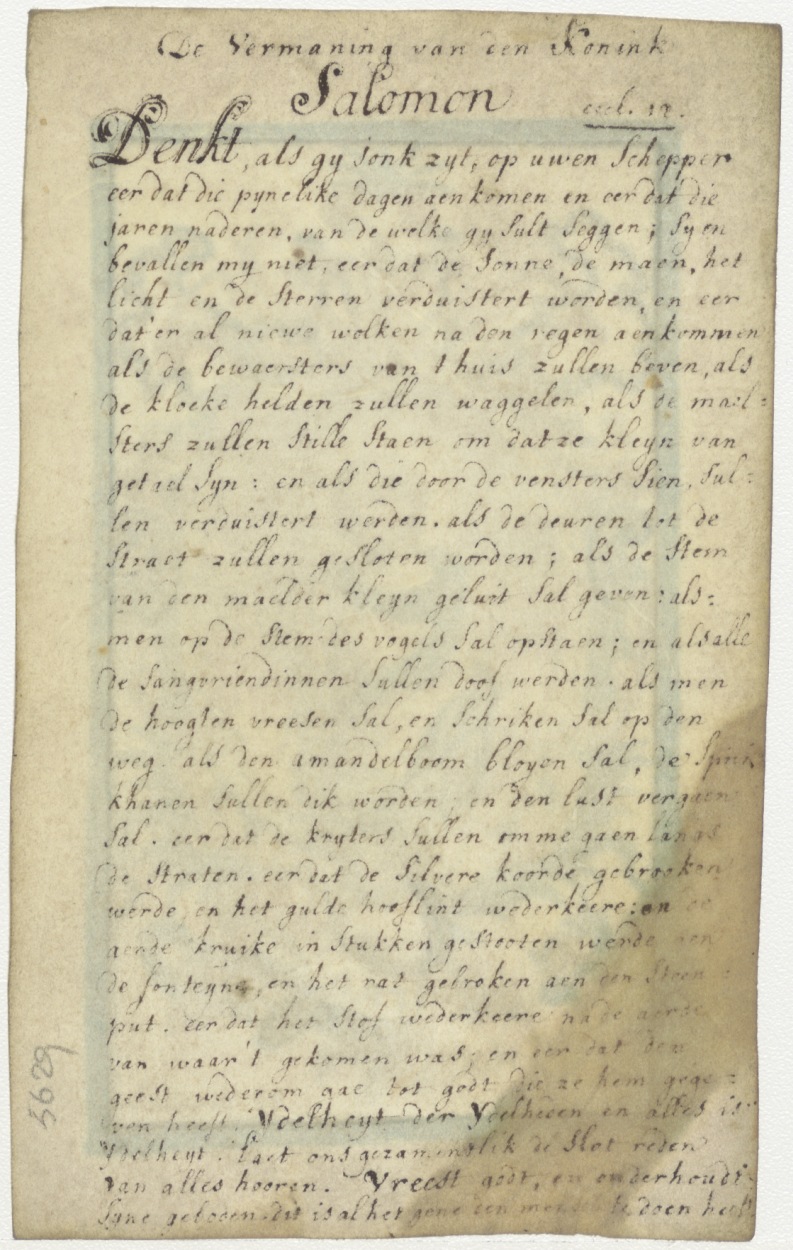 De Vermaning van den Konink
Salomon eccl. 12.
Denkt, als gy jonk zyt, op uwen Schepper
eer dat die pynelike dagen aenkomen en eer dat die
jaren naderen, van de welke gy sult seggen; sy en
bevallen my niet, eer dat de Sonne, de maen, het
licht en de sterren verduistert worden, en eer
dat'er al niewe wolken na den regen aenkommen
als de bewaersters van t huis zullen beven, als
de kloeke helden zullen waggelen, als de mael=
sters zullen stille staen om dat ze kleyn van
getael syn: en als die door de vensters sien, sul=
len verduistert werden. als de deuren tot de
straet zullen gesloten worden; als de stem
van den maelder kleyn geluit sal geven: als=
men op de stem des vogels sal opstaen; en als alle
de sangvriendinnen sullen doof werden. als men
de hoogten vreesen sal, en schriken sal op den
weg. als den amandelboom bloyen sal, de sprink
khanen sullen dik worden, en den lust vergaen
sal. eer dat de kryters sullen omme gaen langs
de straten. eer dat de silvere koorde gebrooken
werde, en het gulde hooflint wederkeere: en de
aerde kruike in stukken gestooten werde aen
de fonteyne, en het rat gebroken aen den steen=
put. eer dat het stof wederkeere na de aerde
van waar't gekomen was, en eer dat den
geest wederom gae tot godt die ze hem gege=
ven heeft. Ydelheyt der Ydelheden en alles is
Ydelheyt. laet ons gezamentlik de slot reden
van alles hooren. Vreest godt, en onderhoudt
syne geboden dit is al het gene den mensch te doen heeft
5629